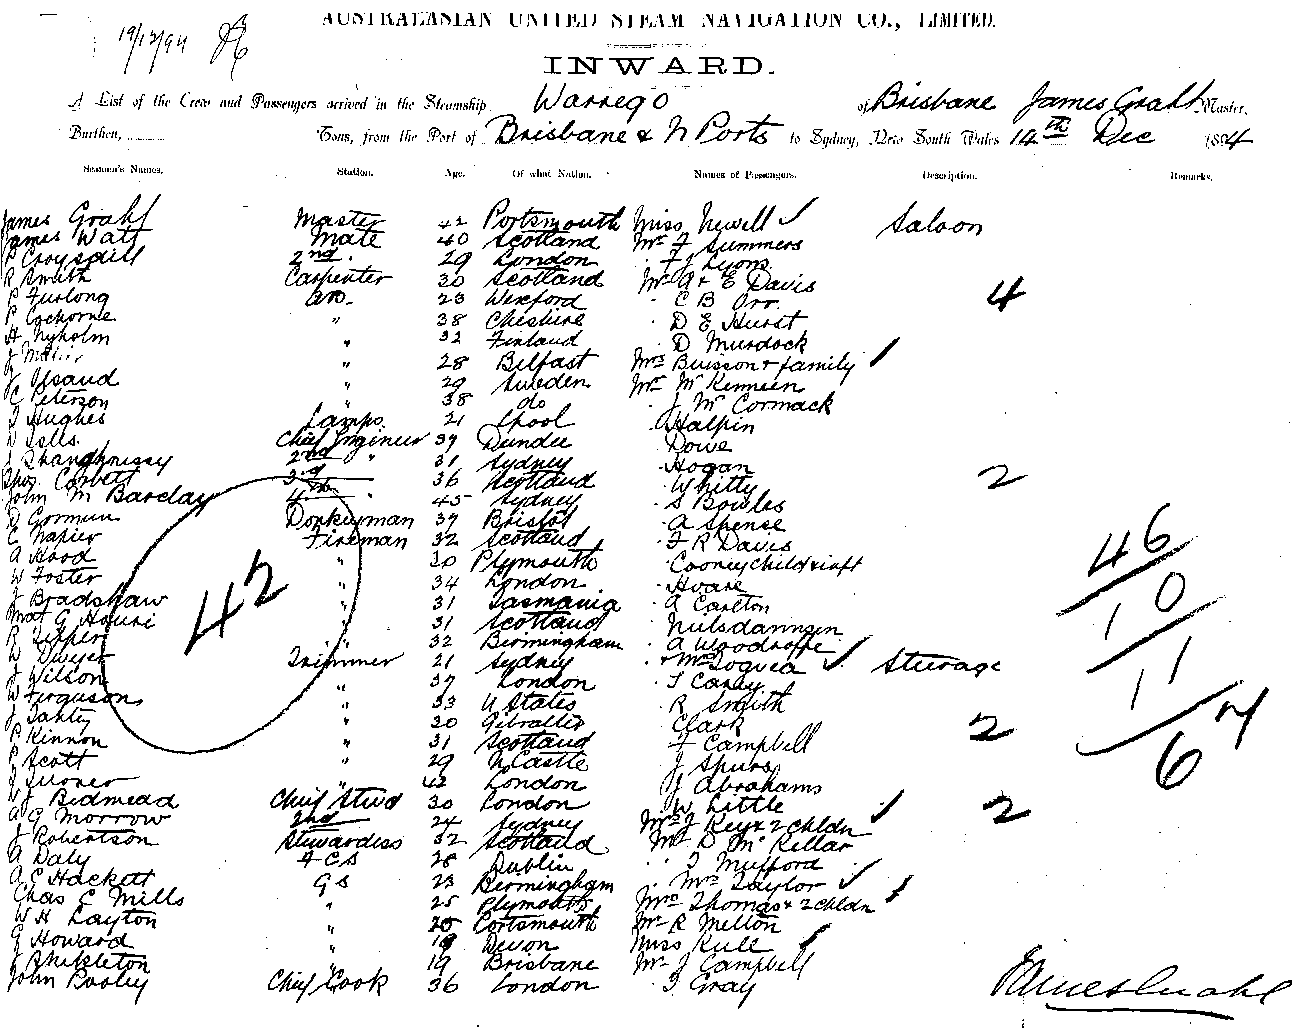 19/12/94
AUSTRALASIAN UNITED STEAM NAVIGATION CO., LIMITED.
INWARD.
A List of the Crew and Passengers arrived in the Steamship Warrego of Brisbane James Grahl Master,
Burthen, Tons, from the Port of Brisbane & N Ports to Sydney, New South Wales 14th Dec 1894
Seamen's Names. Station. Age. Of what Nation. Names of Passengers. Description. Remarks.
James Grahl Master 42 Portsmouth Miss Newell ✓ Saloon
James Watt Mate 40 Scotland Mr F Summers
P Croysdill 2nd 29 London F J Lyons
R Smith Carpenter 30 Scotland Mr A & E Davis
P Furlong AB. 23 Wexford C B Orr 4
P Cochorne " 38 Cheshire D E Hurst
H Nyholm " 32 Finland D Murdock
J " 28 Belfast Mrs Buisson & family ✓
J " 29 Sweden Mr McKenneen
C Peterson " 38 do J McCormack
J Hughes Lamps 21 Lpool Halpin
W Sells Chief Engineer 39 Dundee Dowe
J Shaughnissy 2nd " 31 Sydney Hogan
Thos. Corbett 3rd 36 Scotland Whitty 2
John M Barclay 4th 45 Sydney S Bowles
D Gorman Donkeyman 39 Bristol A Spense
C Napier Fireman 32 Scotland F R Davis 46
A Hood " 30 Plymouth Cooney child & inft
W Foster " 34 London Hoare 10
J Bradshaw " 31 Tasmania A Carlton
Mat G Houri " 31 Scotland 42
R " 32 Birmingham A Woodroffe
D Dwyer Trimmer 21 Sydney & Mrs ✓ Steerage 11
J Wilson " 37 London T Carey
W Ferguson " 33 U States R Smith
J " 30 Gibralter Clark 2
P Kinnon " 31 Scotland F Campbell
P Scott " 29 N Castle J Spurs 67
J Turner " 42 London J Abrahams
W J Bidmead Chief Stwd 30 London W Little ✓ 2
A G Morrow 2nd 24 Sydney Mrs J Key & 2 chldn
J Robertson Stewardess 32 Scotland Mr D McKellar
A Daly F C S 28 Dublin J Mufford
A E Hackett G S 23 Birmingham Mrs Taylor ✓
Chas E Mills " 25 Plymouth Mrs Thomas & 2 chldn ✓
W H Layton " 25 Portsmouth Mr R Melton
G Howard " 19 Devon Miss Rule ✓
J Shekleton " 19 Brisbane Mr J Campbell
John Pooley Chief Cook 36 London J Gray
James Grahl